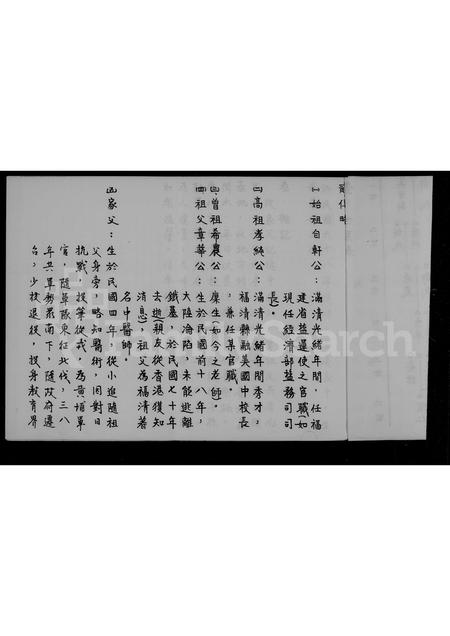 ㈠始祖自軒公：滿清光緒年間，任福
建省鹽運使之官職（如
現任經濟部鹽務司司
長）。
㈡高祖孝純公：滿清光緒年間秀才，
福清縣融美國中校長
，兼任某官職。
㈢曾祖希農公：廩生（如今之老師）。
㈣祖父章華公：生於民國前十八年，
大陸淪陷，未能逃離
鐵幕，於民國七十年
去逝（親友從香港獲知
消息），祖父為福清著
名中醫師。
㈤家父：生於民國四年，從小追隨祖
父身旁，略知醫術，因對日
抗戰，投筆從戎，為黃埔軍
官，隨軍隊東征北伐，三八
年共軍南下，隨政府遷
台，少校退役，投身教育界
Search